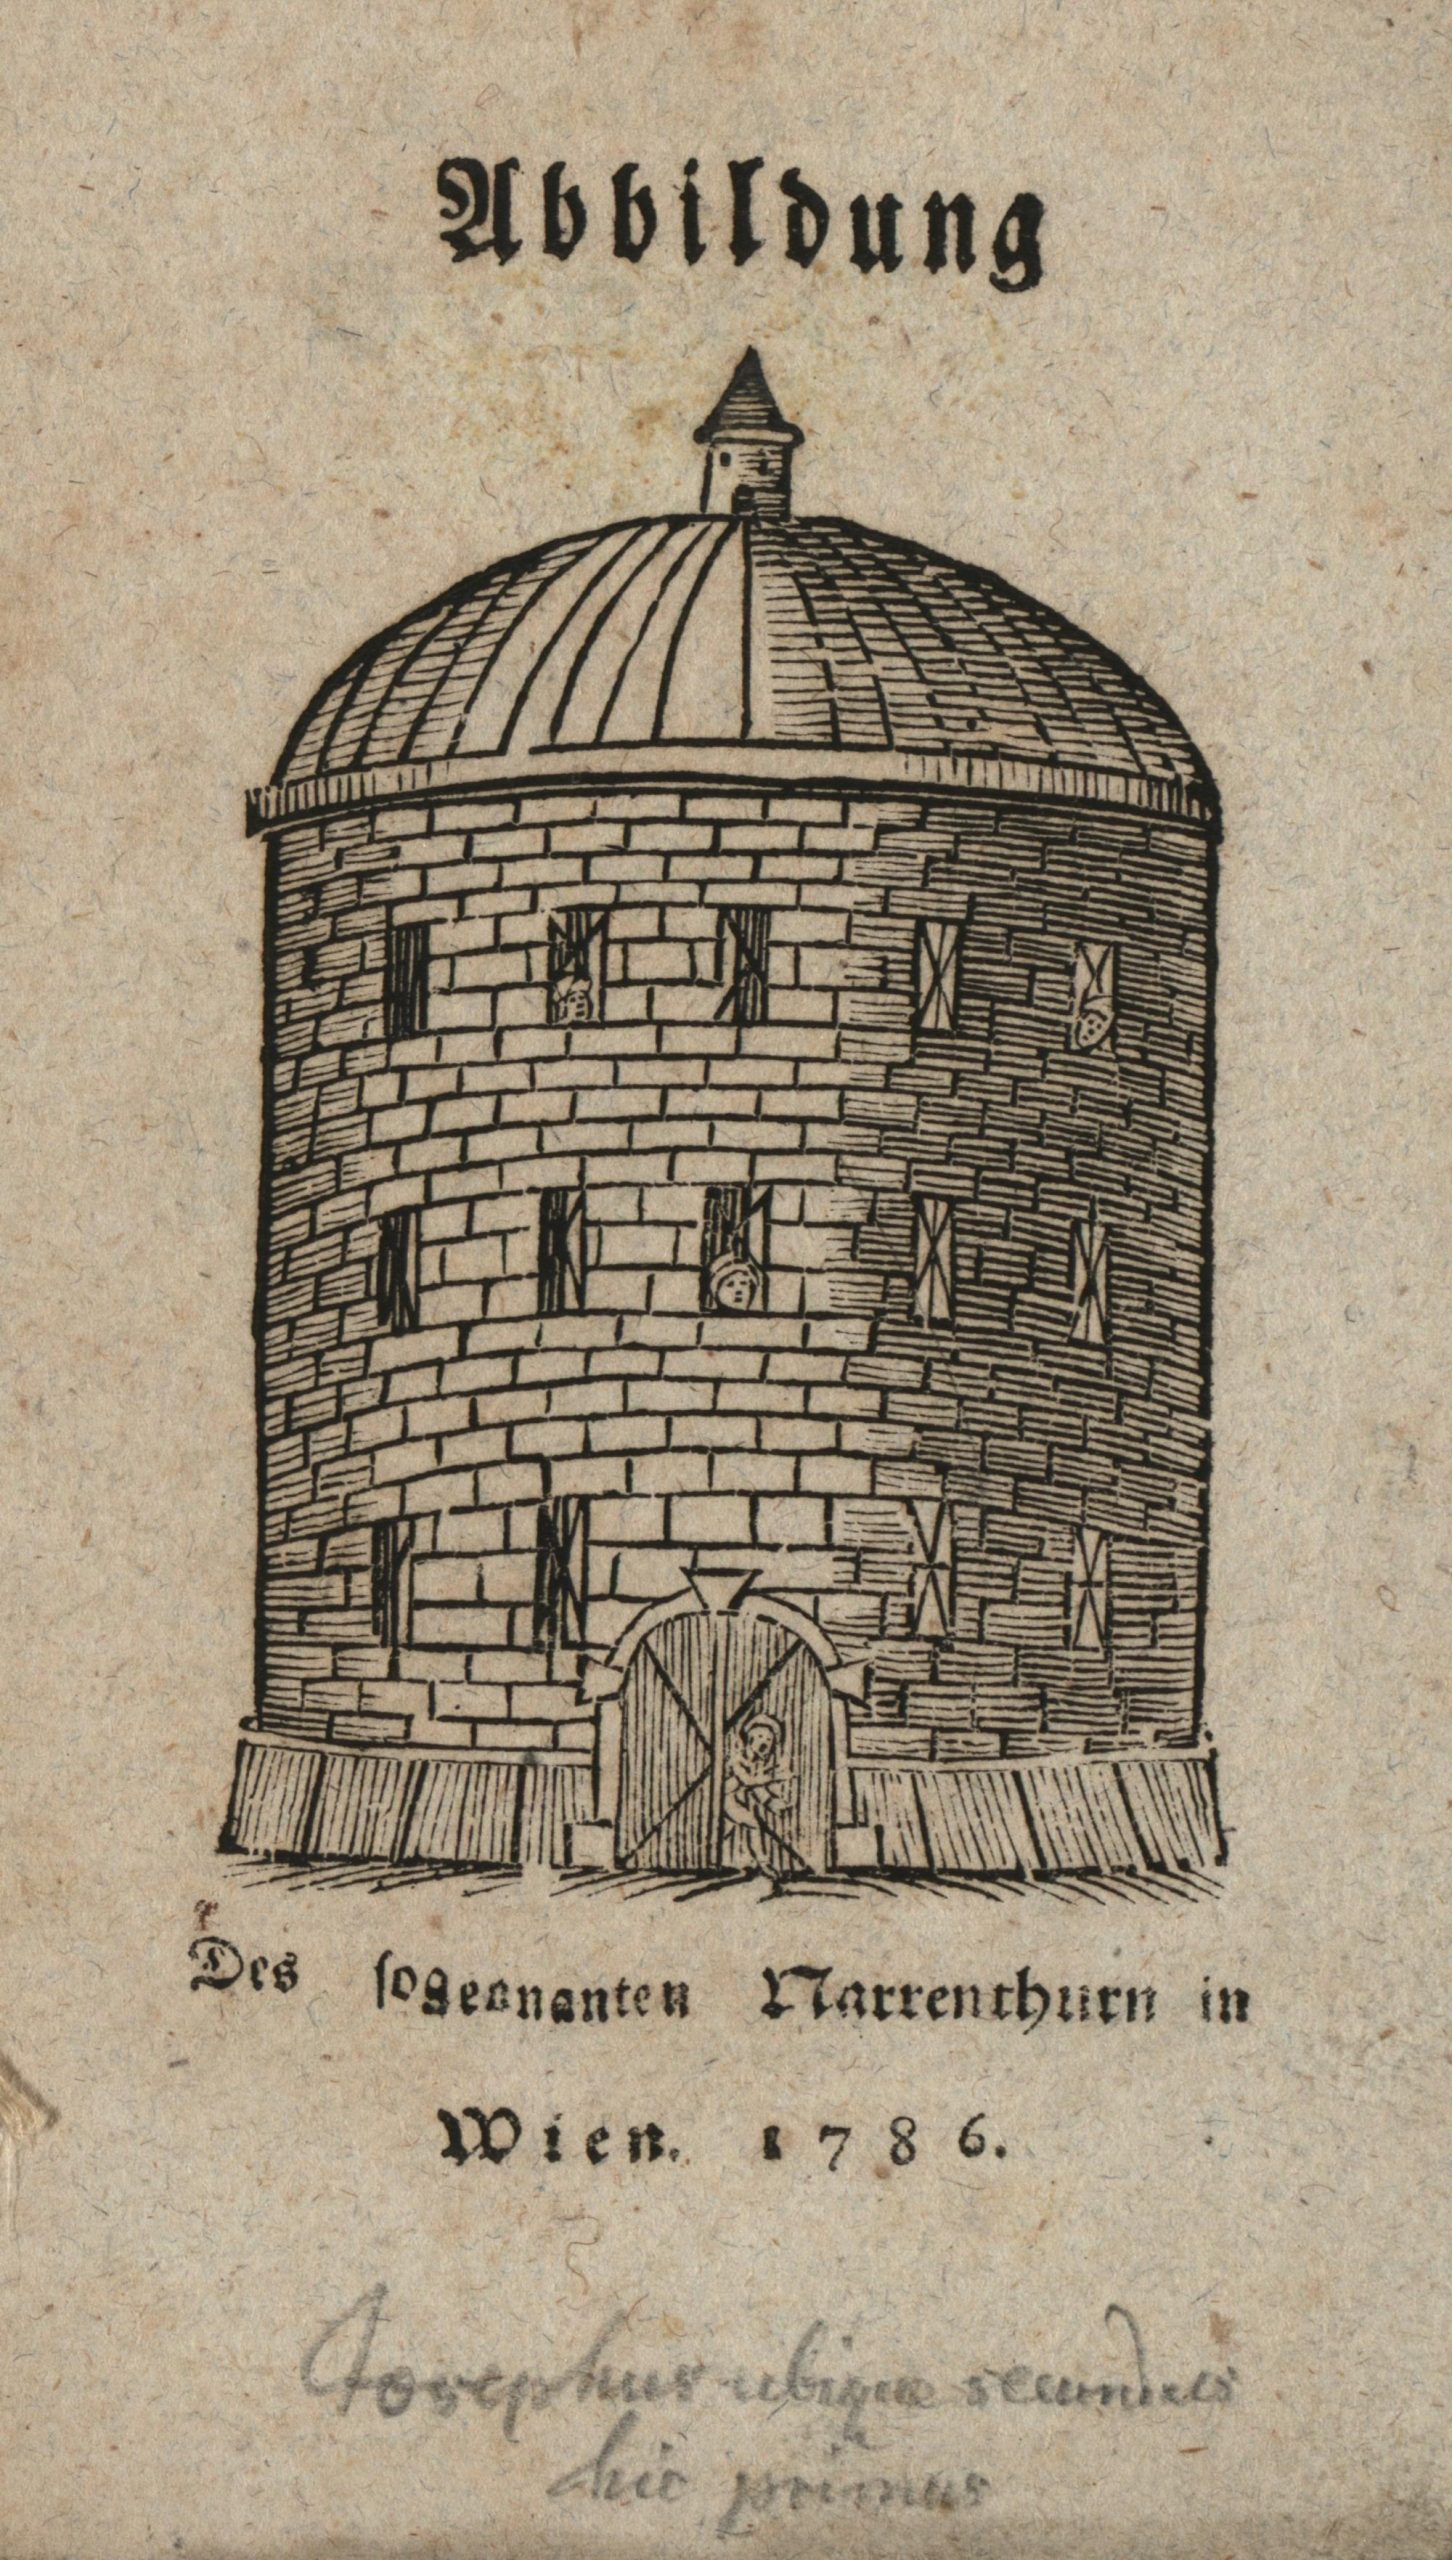 Abbildung
Des sogenannten Narrenthurn in
Wien. 1786.
Josephus ubique secundus
hic primus